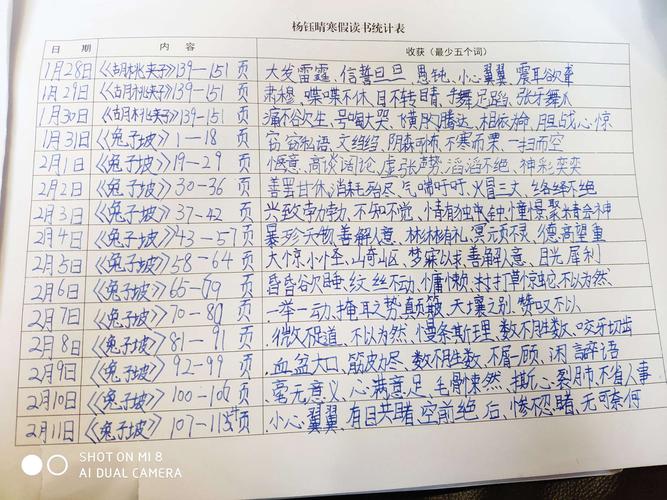 杨钰晴寒假读书统计表
日 期 内 容 收获（最少五个词）
1月28日 《胡桃夹子》139—151 页 大发雷霆、信誓旦旦、愚钝、小心翼翼、震耳欲聋
1月29日 《胡桃夹子》139—151 页 肃穆、喋喋不休、目不转睛、手舞足蹈、张牙舞爪
1月30日 《胡桃夹子》139—151 页 痛不欲生、号啕大哭、飞黄腾达、相依为命、胆战心惊
1月31日 《兔子坡》1—18 页 窃窃私语、文绉绉、阴森可怖、不寒而栗、一扫而空
2月1日 《兔子坡》19—29 页 惬意、高谈阔论、虚张声势、滔滔不绝、神彩奕奕
2月2日 《兔子坡》30—36 页 善罢甘休、消耗殆尽、气喘吁吁、火冒三丈、络绎不绝
2月3日 《兔子坡》37—42 页 兴致勃勃、不知不觉、情有独钟、憧憬、聚精会神
2月4日 《兔子坡》43—57 页 暴殄天物、善解人意、彬彬有礼、冥顽不灵、德高望重
2月5日 《兔子坡》58—64 页 大惊小怪、山奇山区、梦寐以求、善解人意、月光、犀利
2月6日 《兔子坡》65—69 页 昏昏欲睡、纹丝不动、慵懒、打草惊蛇、不以为然
2月7日 《兔子坡》70—80 页 一举一动、掩耳之势、颠簸、天壤之别、赞叹不以
2月8日 《兔子坡》81—91 页 微不足道、不以为然、慢条斯理、数不胜数、咬牙切齿
2月9日 《兔子坡》92—99 页 血盆大口、筋疲力尽、数不胜数、不屑一顾、闲言碎语
2月10日 《兔子坡》100—106 页 毫无意义、心满意足、毛骨悚然、撕心裂肺、不省人事
2月11日 《兔子坡》107—118 页 小心翼翼、有目共睹、空前绝后、惨不忍睹、无可奈何
SHOT ON MI 8
AI DUAL CAMERA